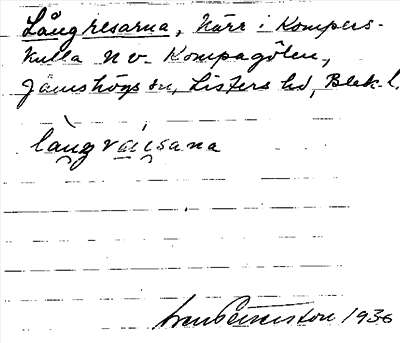 Långresarna, kärr i Kompers-
kulla n v. Kompagölen,
Jämshögs sn, Listers hd, Blek. l.
làngráisana
1936